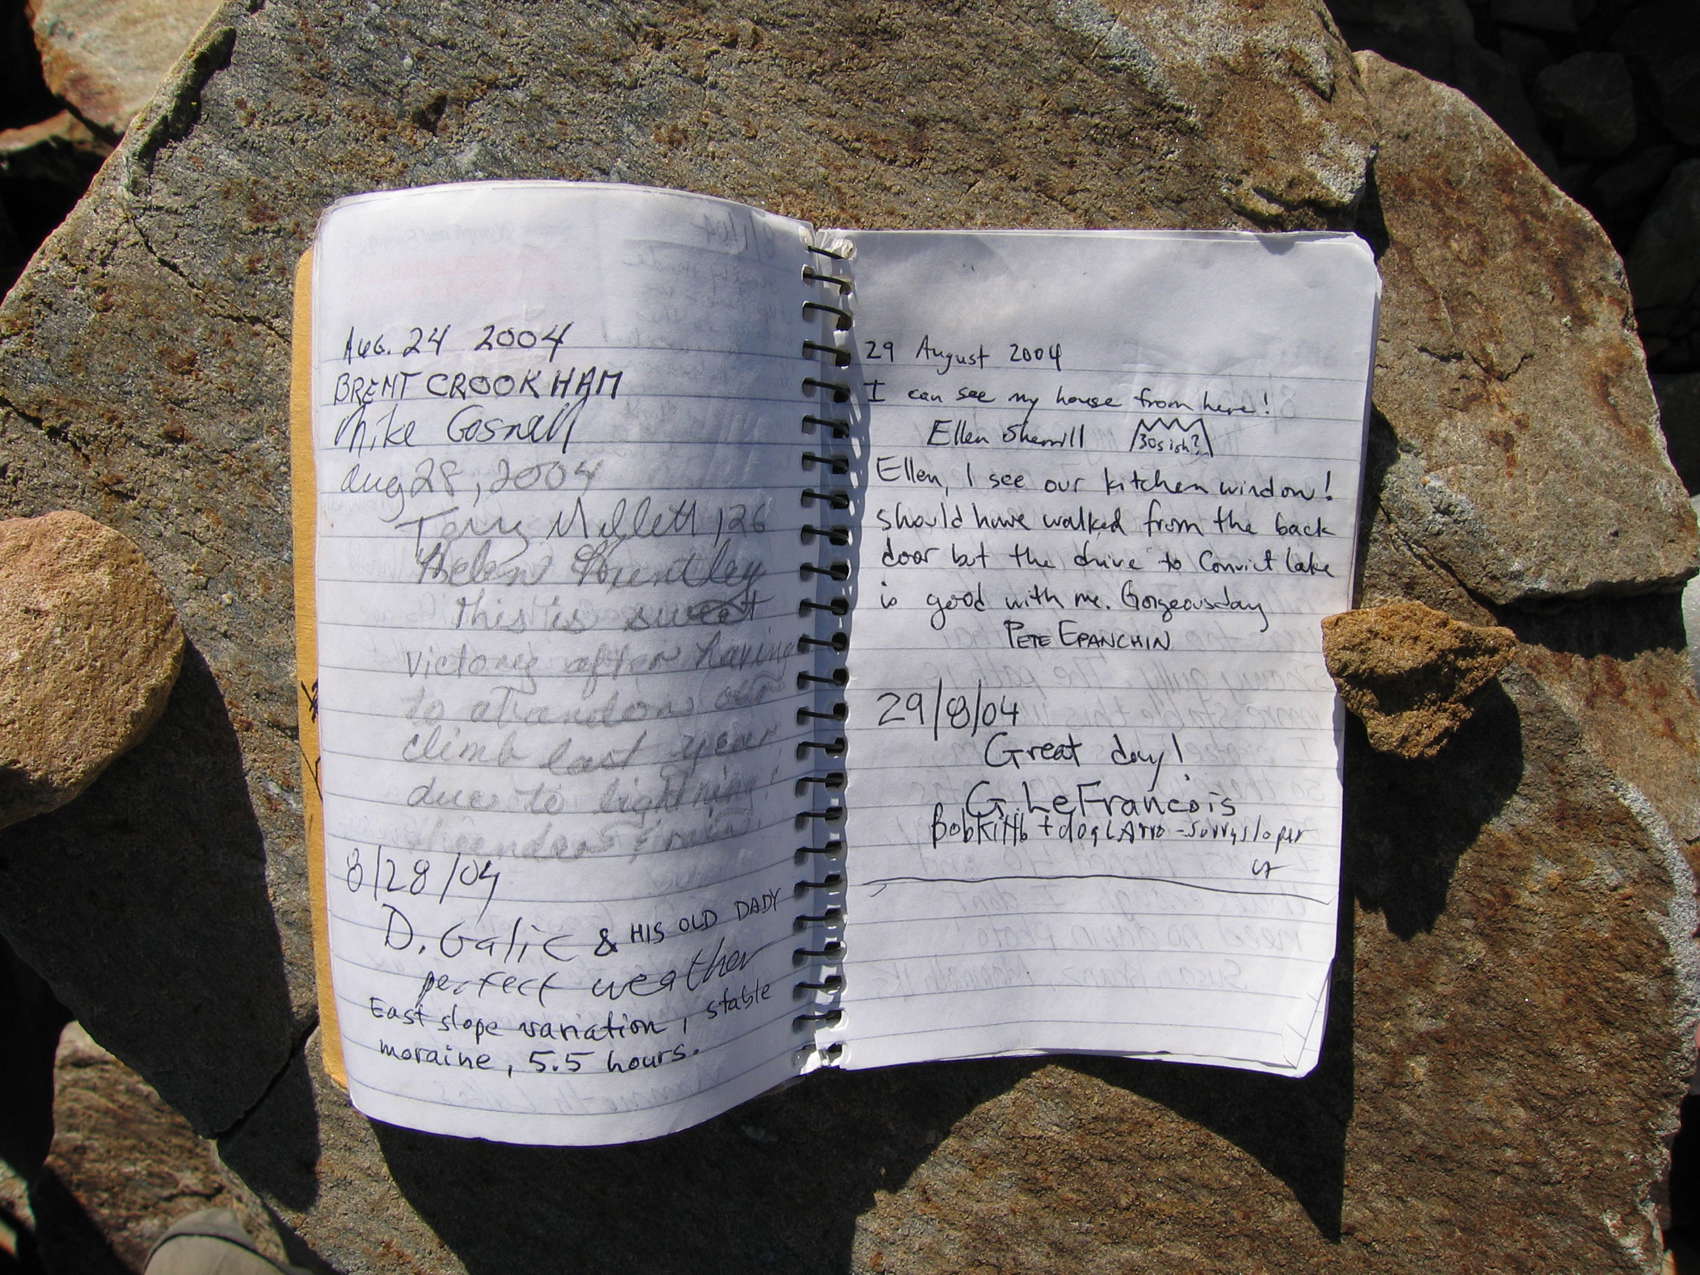 Aug. 24 2004
BRENT CROOKHAM
Mike Gosnell
Aug 28, 2004
Millett
Helen Huntley
This is sweet
victory after having
to abandon our
climb last year
due to lightning!
8/28/04
D. Galic & HIS OLD DADY
perfect weather
East slope variation, stable
moraine, 5.5 hours.
29 August 2004
I can see my house from here!
Ellen Sherrill 30sish?
Ellen, I see our kitchen window!
should have walked from the back
door but the drive to Convict Lake
is good with me. Gorgeous day
PETE EPANCHIN
29/8/04
Great day!
G. LeFrancois
Bob + dog